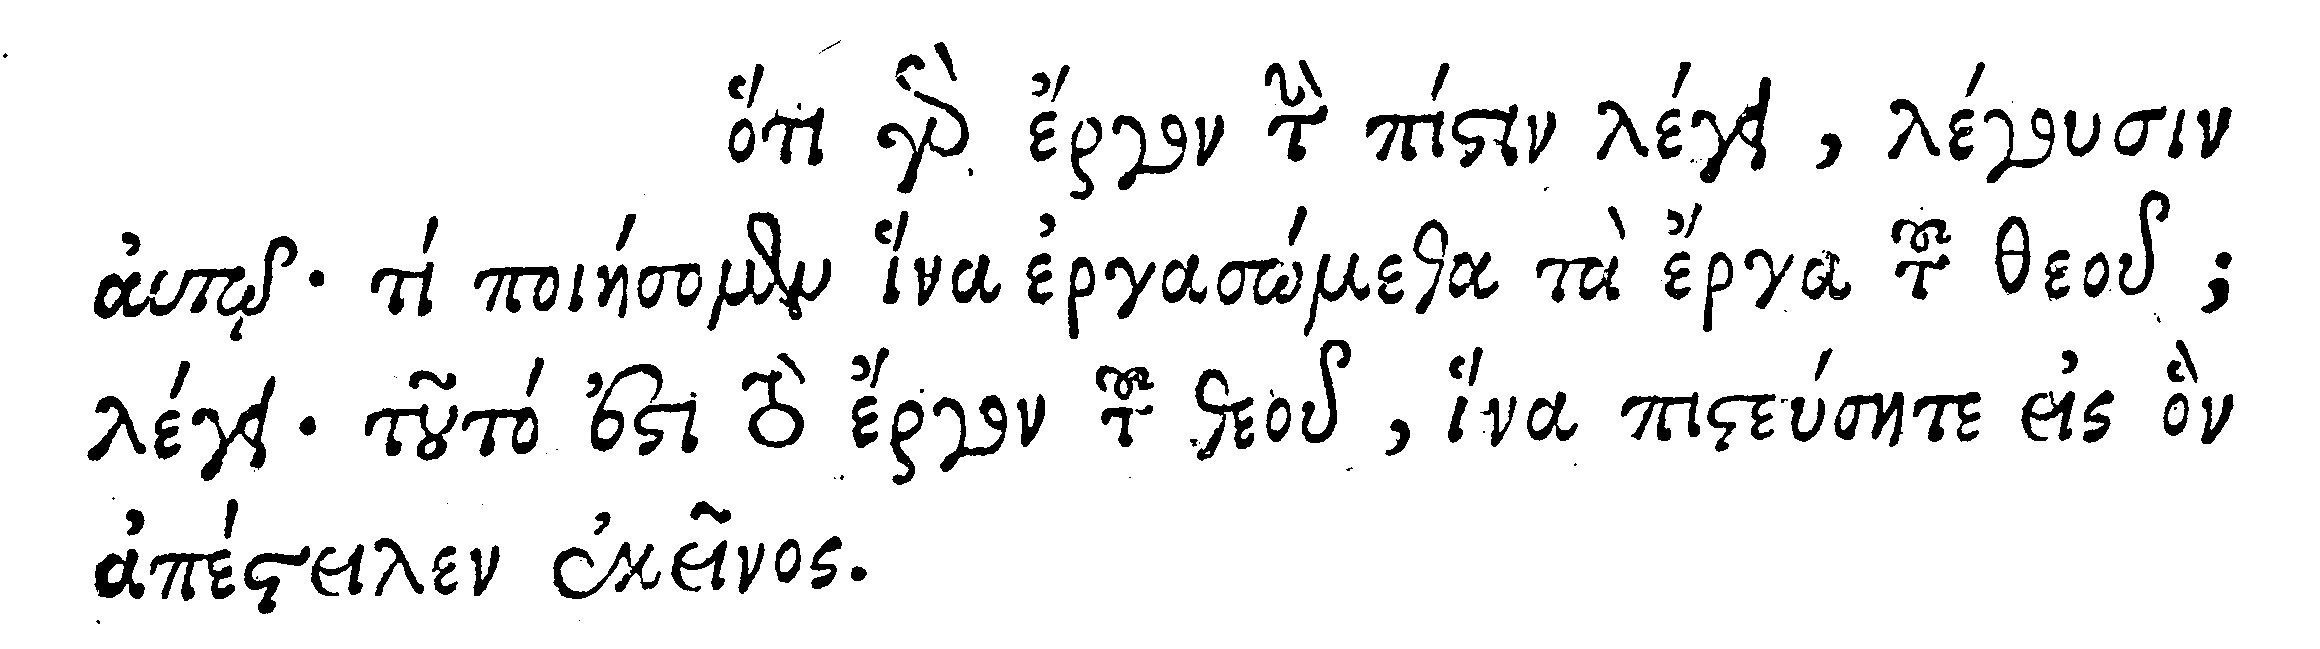 ὅτι γὰρ ἔργον τὴν πίστιν λέγει, λέγουσιν
αὐτῷ· τί ποιήσομεν ἵνα ἐργασώμεθα τὰ ἔργα τοῦ θεοῦ;
λέγει· τοῦτό ἐστι τὸ ἔργον τοῦ θεοῦ, ἵνα πιστεύσητε εἰς ὃν
ἀπέστειλεν ἐκεῖνος.